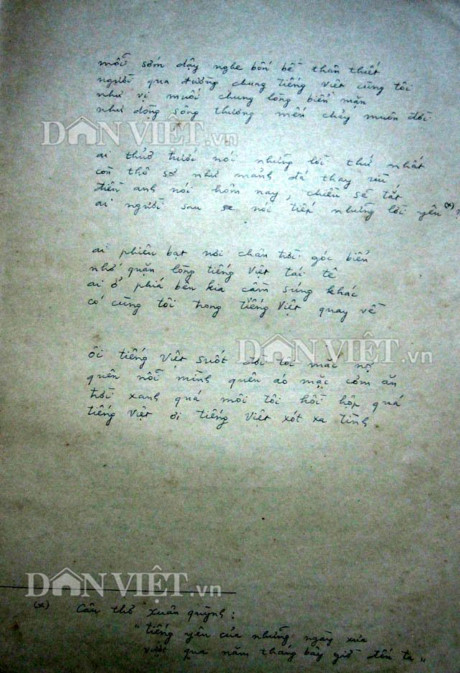 mỗi sớm dậy nghe bốn bề thân thiết
người qua đường chung tiếng Việt cùng tôi
như vị muối chung lòng biển mặn
như dòng sông thương mến chảy muôn đời
DÂNVIỆT.vn
ai thuở trước nói những lời thứ nhất
còn thô sơ như mảnh đá thay rìu
điều anh nói hôm nay, chiều sẽ tắt
ai người sau sẽ nói tiếp những lời yêu (*)?
ai phiêu bạt nơi chân trời góc biển
nhớ quặn lòng tiếng Việt tái tê
ai ở phía bên kia cầm súng khác
có cùng tôi trong tiếng Việt quay về
DÂNVIỆT.vn
ôi tiếng Việt suốt đời tôi mắc nợ
quên nỗi mình quên áo mặc cơm ăn
trời xanh quá môi tôi hồi hộp quá
tiếng Việt ơi tiếng Việt xót xa tình
DÂNVIỆT.vn
(*) Câu thơ Xuân Quỳnh:
"tiếng yêu của những ngày xưa
vượt qua năm tháng bây giờ đến ta"
DÂNVIỆT.vn